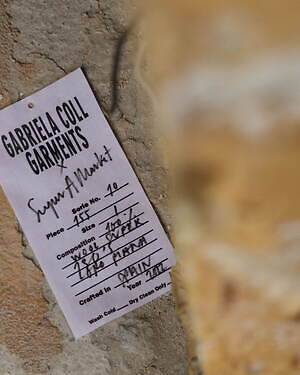 GABRIELA COLL
GARMENTS
X
Super A Market
Serie No. 10
Piece 155 Size 1
Composition 100%
WOOL OVEER
Crafted in SPAIN
Year 2022
Wash Cold Dry Clean Only